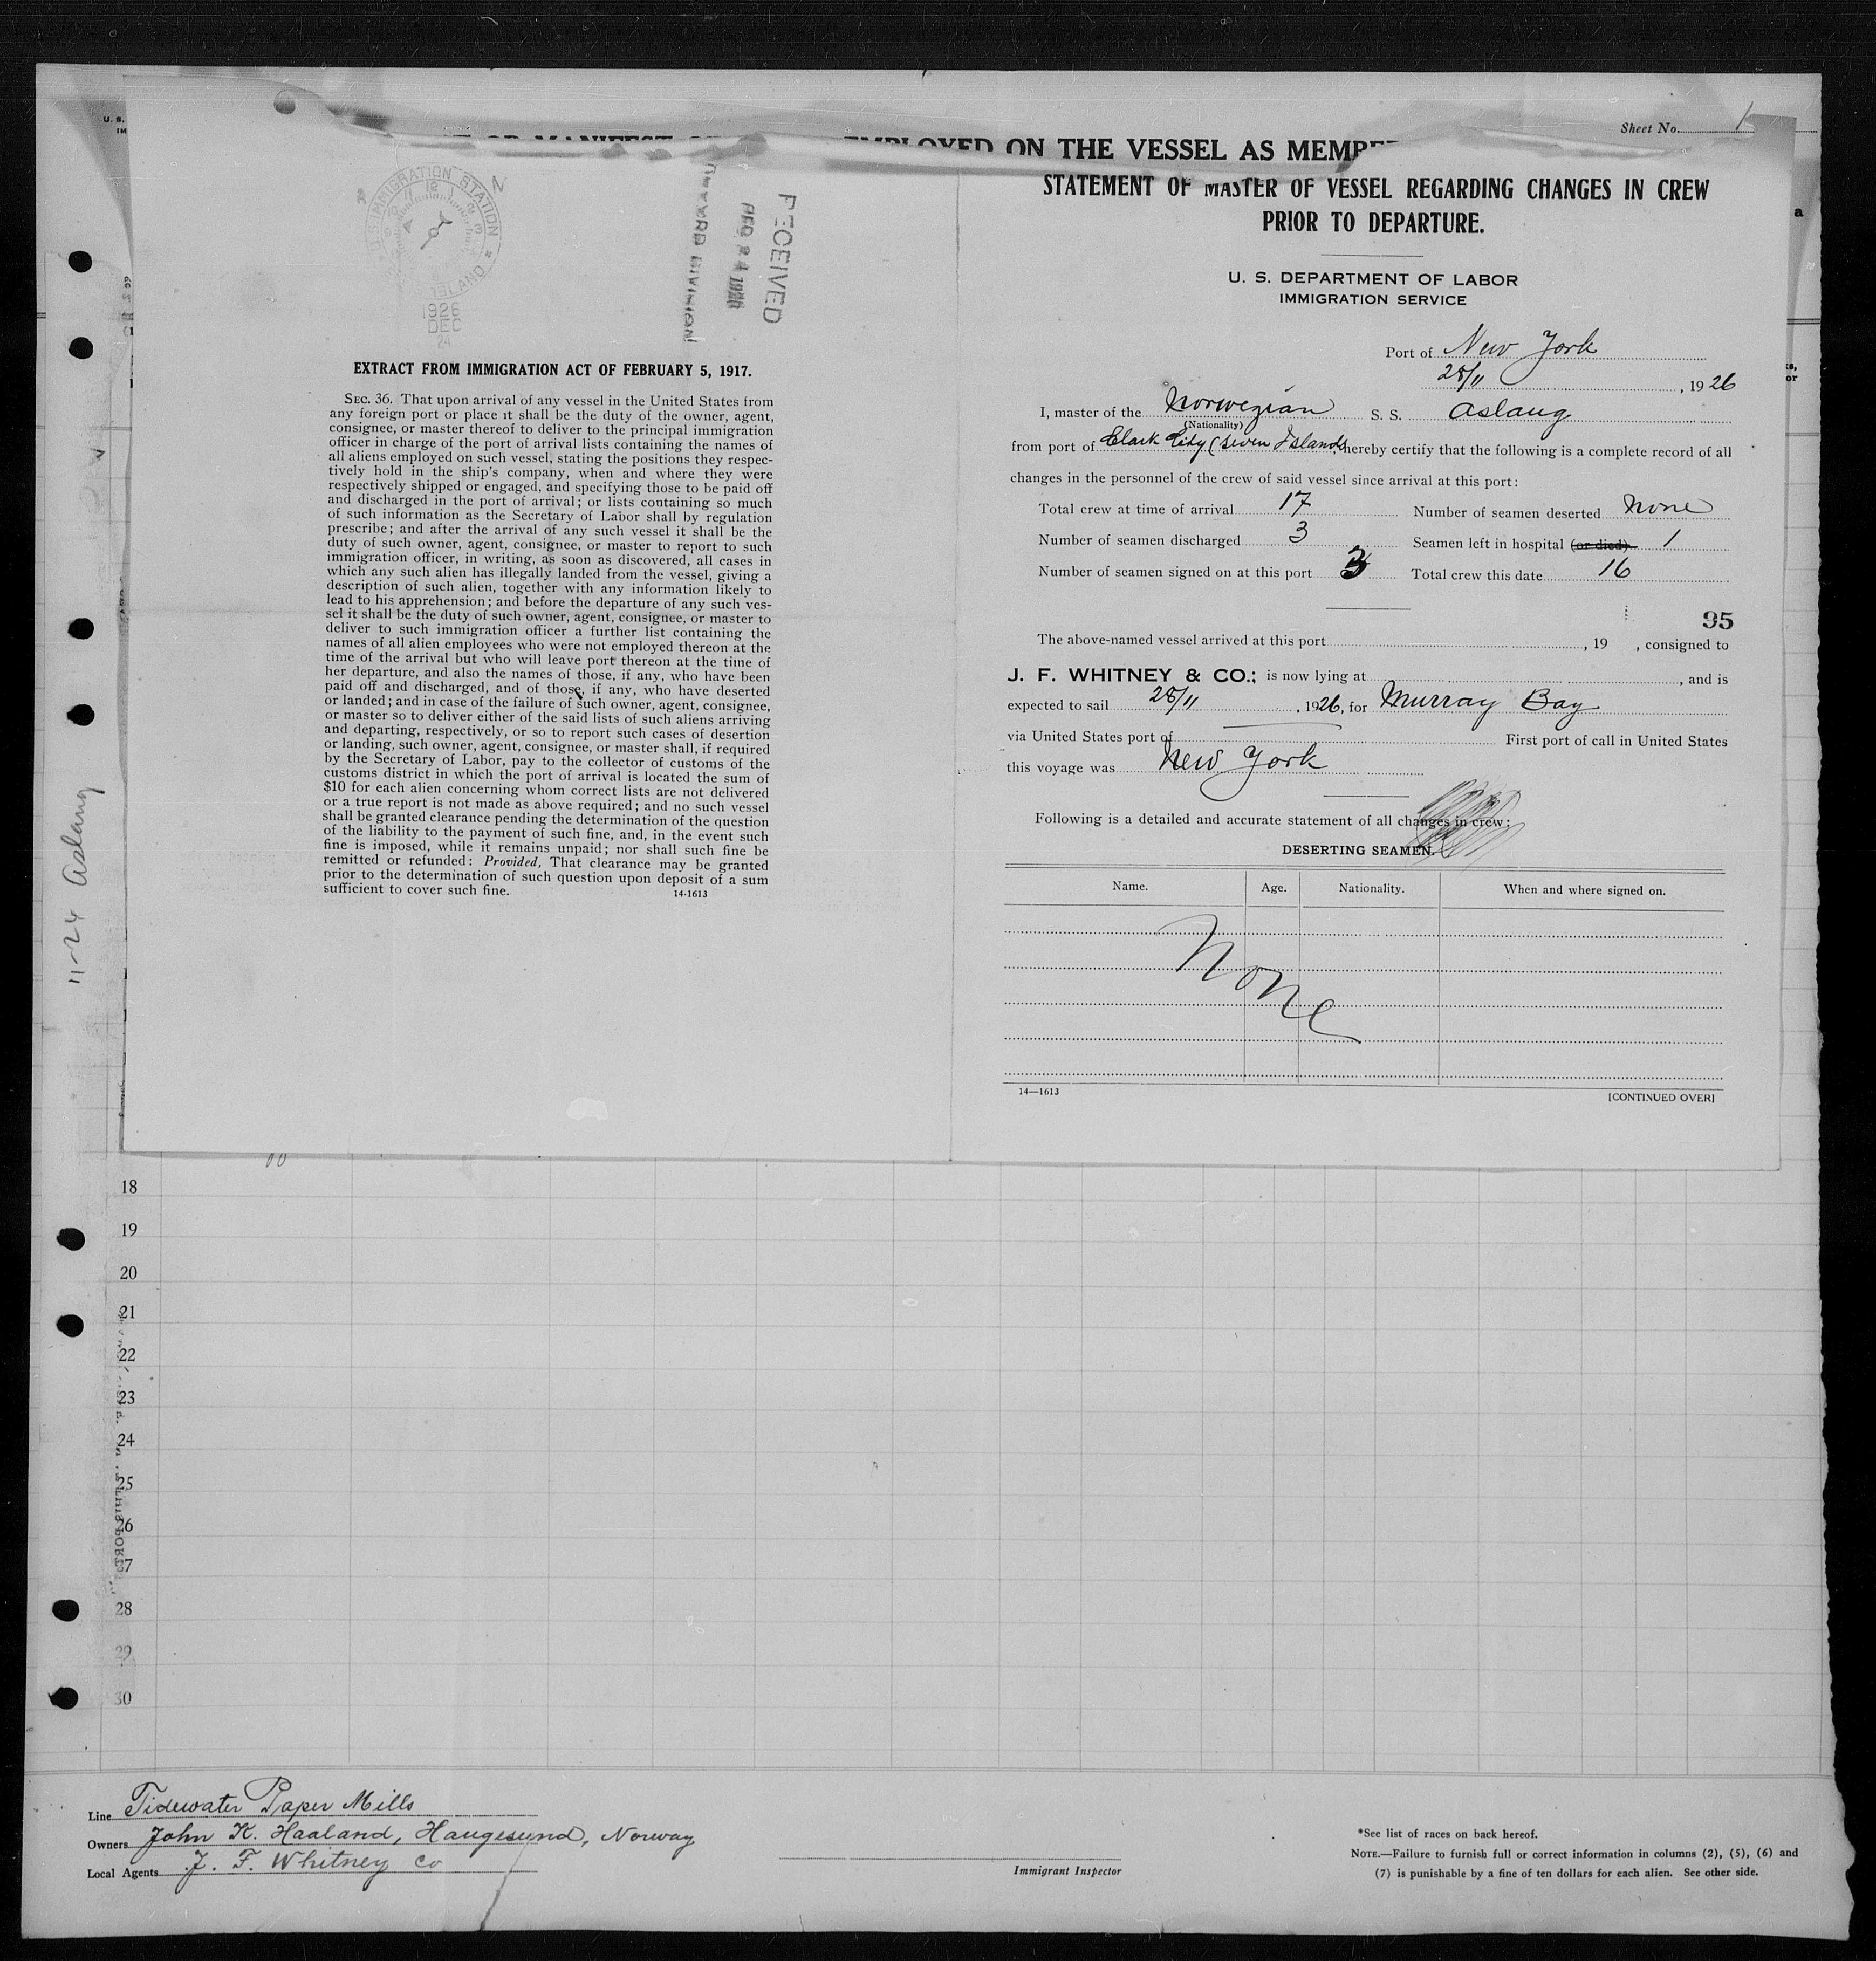 Sheet No. 1
EMPLOYED ON THE VESSEL AS
U. S. IMMIGRATION STATION
ISLAND
1926
DEC
24
RECEIVED
DEC 24 1926
DIVISION
EXTRACT FROM IMMIGRATION ACT OF FEBRUARY 5, 1917.
SEC. 36. That upon arrival of any vessel in the United States from
any foreign port or place it shall be the duty of the owner, agent,
consignee, or master thereof to deliver to the principal immigration
officer in charge of the port of arrival lists containing the names of
all aliens employed on such vessel, stating the positions they respec-
tively hold in the ship's company, when and where they were
respectively shipped or engaged, and specifying those to be paid off
and discharged in the port of arrival; or lists containing so much
of such information as the Secretary of Labor shall by regulation
prescribe; and after the arrival of any such vessel it shall be the
duty of such owner, agent, consignee, or master to report to such
immigration officer, in writing, as soon as discovered, all cases in
which any such alien has illegally landed from the vessel, giving a
description of such alien, together with any information likely to
lead to his apprehension; and before the departure of any such ves-
sel it shall be the duty of such owner, agent, consignee, or master to
deliver to such immigration officer a further list containing the
names of all alien employees who were not employed thereon at the
time of the arrival but who will leave port thereon at the time of
her departure, and also the names of those, if any, who have been
paid off and discharged, and of those, if any, who have deserted
or landed; and in case of the failure of such owner, agent, consignee,
or master so to deliver either of the said lists of such aliens arriving
and departing, respectively, or so to report such cases of desertion
or landing, such owner, agent, consignee, or master shall, if required
by the Secretary of Labor, pay to the collector of customs of the
customs district in which the port of arrival is located the sum of
$10 for each alien concerning whom correct lists are not delivered
or a true report is not made as above required; and no such vessel
shall be granted clearance pending the determination of the question
of the liability to the payment of such fine, and, in the event such
fine is imposed, while it remains unpaid; nor shall such fine be
remitted or refunded: Provided, That clearance may be granted
prior to the determination of such question upon deposit of a sum
sufficient to cover such fine. 14-1613
STATEMENT OF MASTER OF VESSEL REGARDING CHANGES IN CREW
PRIOR TO DEPARTURE.
U. S. DEPARTMENT OF LABOR
IMMIGRATION SERVICE
Port of New York
28/11, 1926
I, master of the Norwegian S. S. Aslaug
(Nationality)
from port of Clark City (Seven Islands, hereby certify that the following is a complete record of all
changes in the personnel of the crew of said vessel since arrival at this port:
Total crew at time of arrival 17 Number of seamen deserted None
Number of seamen discharged 3 Seamen left in hospital (or died) 1
Number of seamen signed on at this port 3 Total crew this date 16
95
The above-named vessel arrived at this port , 19 , consigned to
J. F. WHITNEY & CO.; is now lying at , and is
expected to sail 28/11, 1926, for Murray Bay
via United States port of First port of call in United States
this voyage was New York
Following is a detailed and accurate statement of all changes in crew:
DESERTING SEAMEN.
Name. Age. Nationality. When and where signed on.
None
14—1613 [CONTINUED OVER]
11-24 Aslaug
18
19
20
21
22
23
24
25
26
27
28
29
30
Line Tidewater Paper Mills
Owners John K. Haaland, Haugesund, Norway
Local Agents J. F. Whitney Co
Immigrant Inspector
*See list of races on back hereof.
NOTE.—Failure to furnish full or correct information in columns (2), (5), (6) and
(7) is punishable by a fine of ten dollars for each alien. See other side.